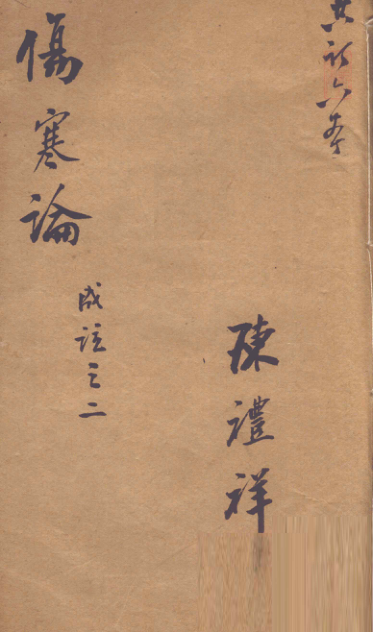 共六本
陳禮祥
傷寒論
成註之二